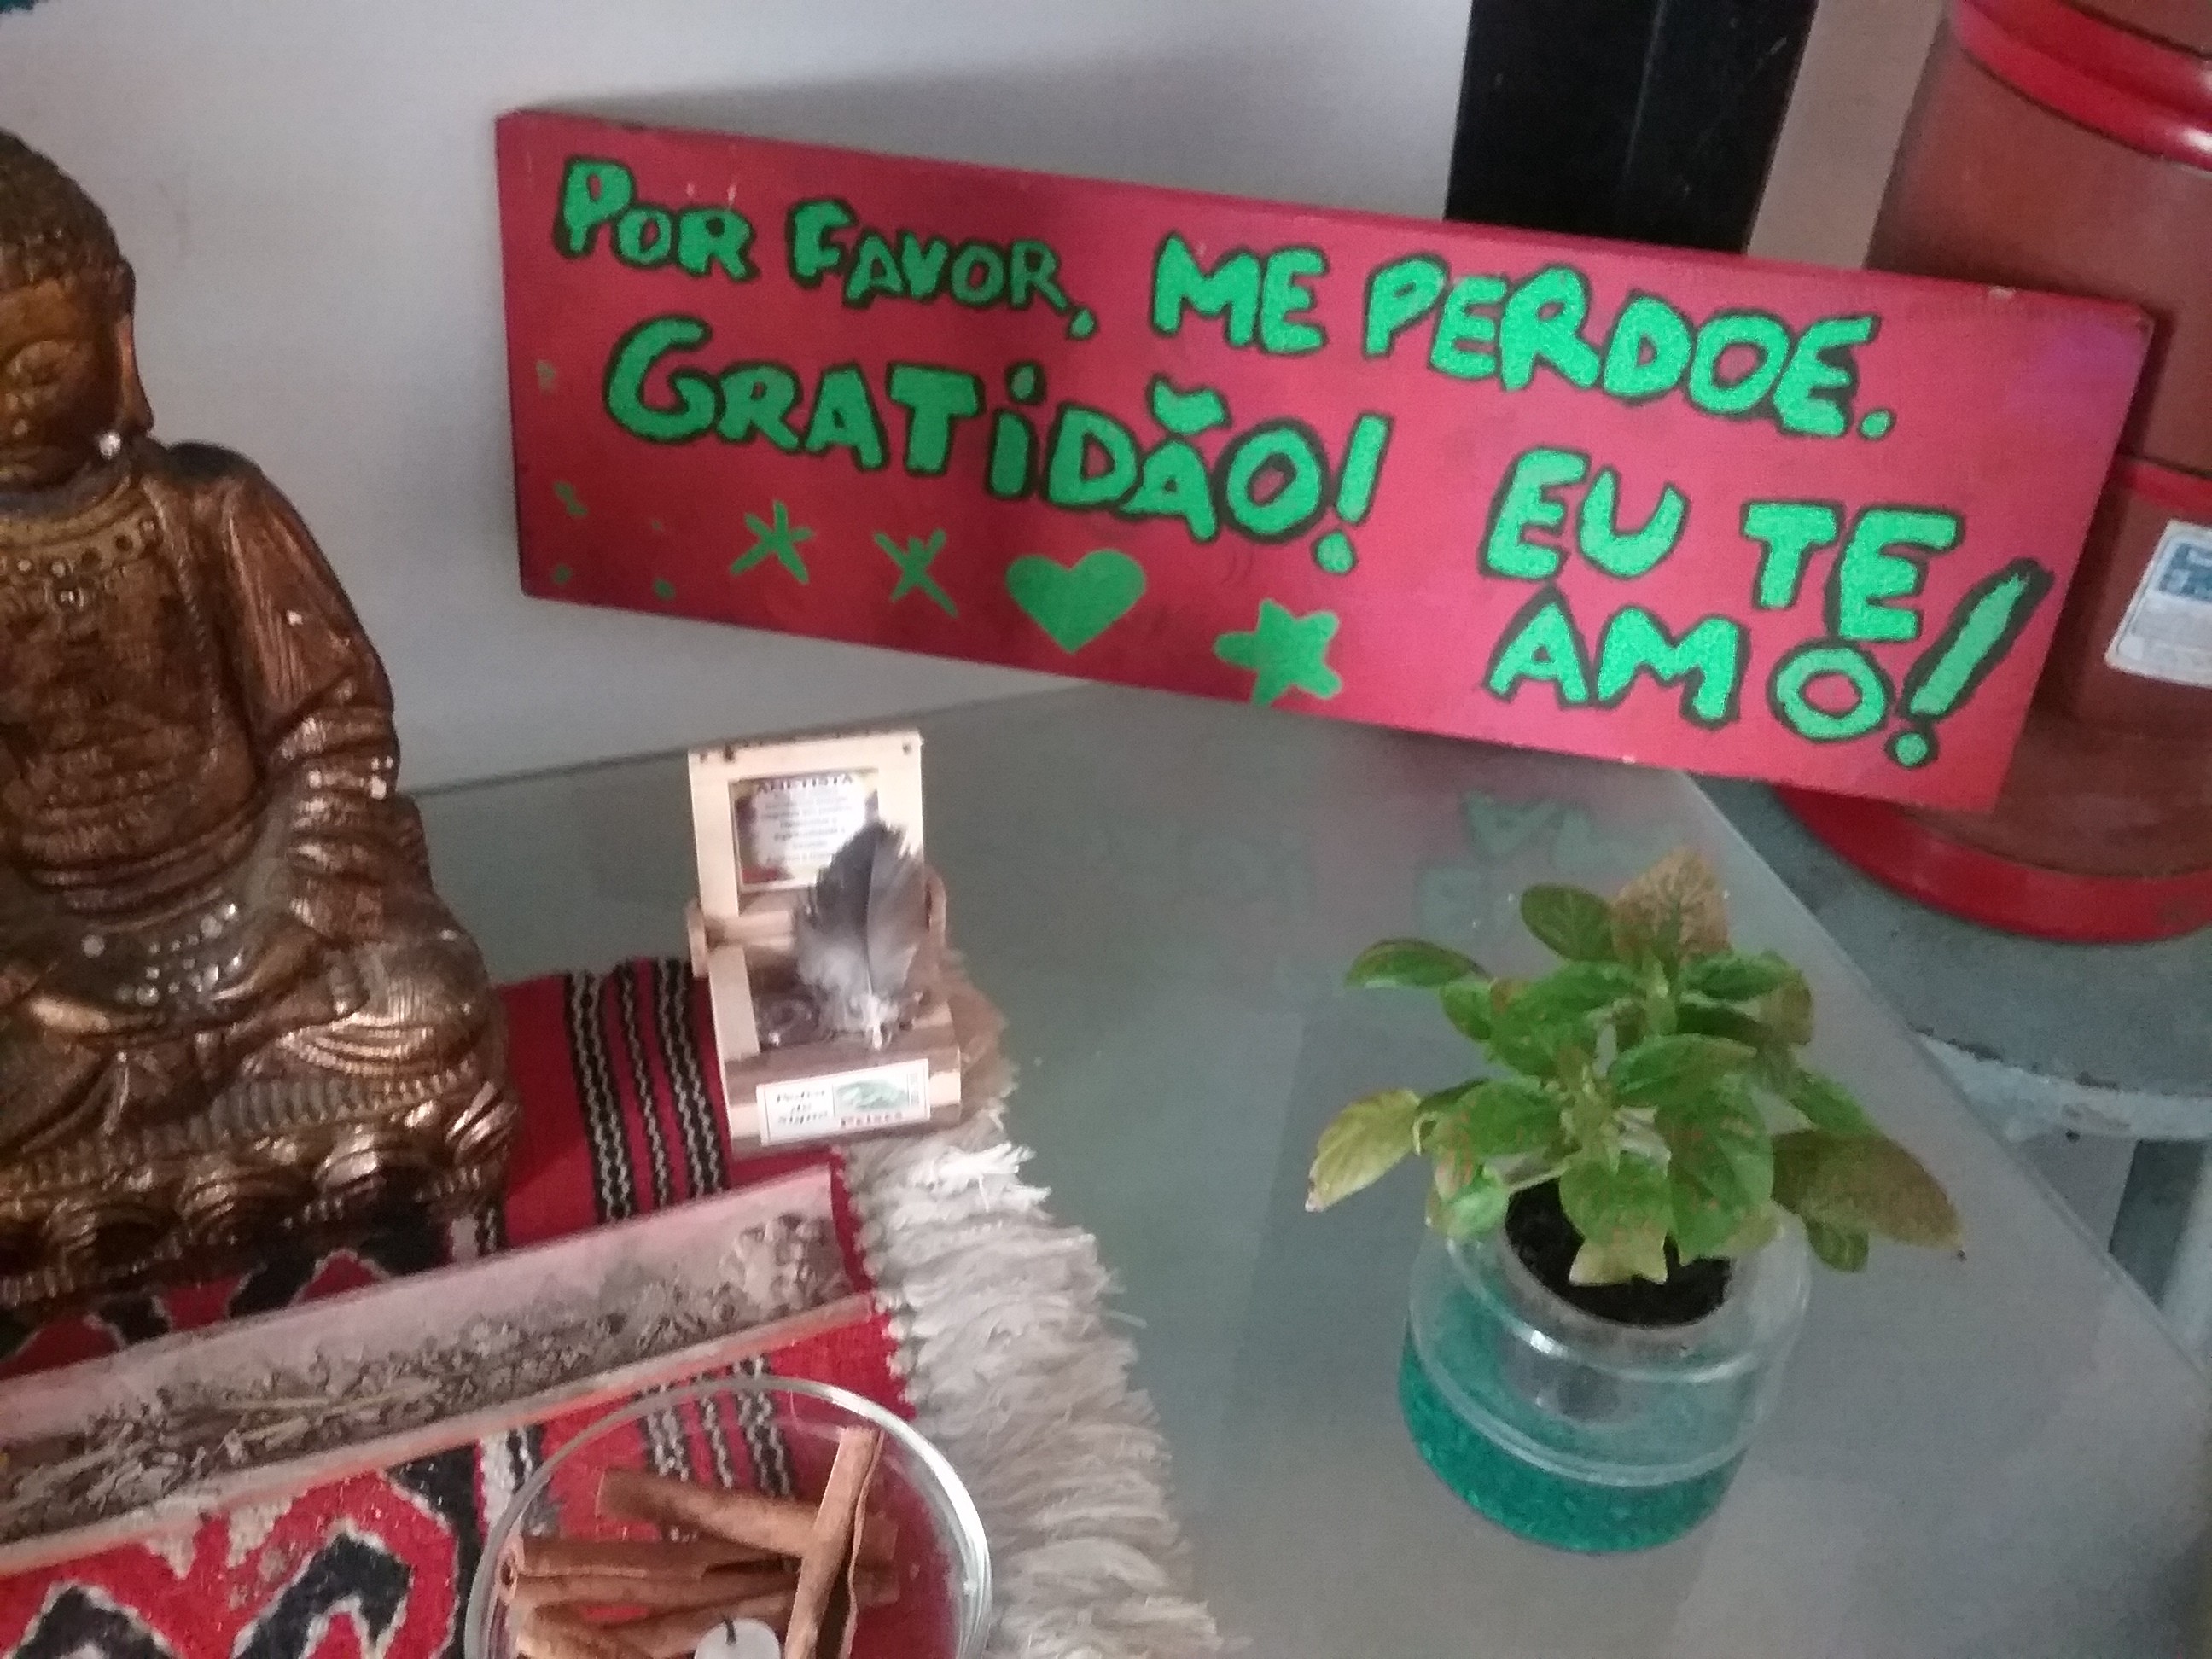 POR FAVOR, ME PERDOE.
GRATiDÃO! EU TE
AMO!
AMETISTA
Pedra
do
Signo
Peixes